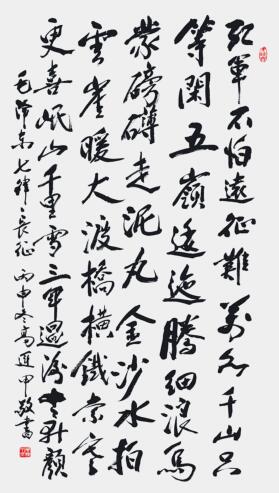 紅軍不怕遠征難萬水千山只
等閑五嶺逶迤騰細浪烏
蒙磅礴走泥丸金沙水拍
雲崖暖大渡橋橫鐵索寒
更喜岷山千里雪三軍過後盡開顏
毛澤東七律長征 丙申冬高進甲敬書